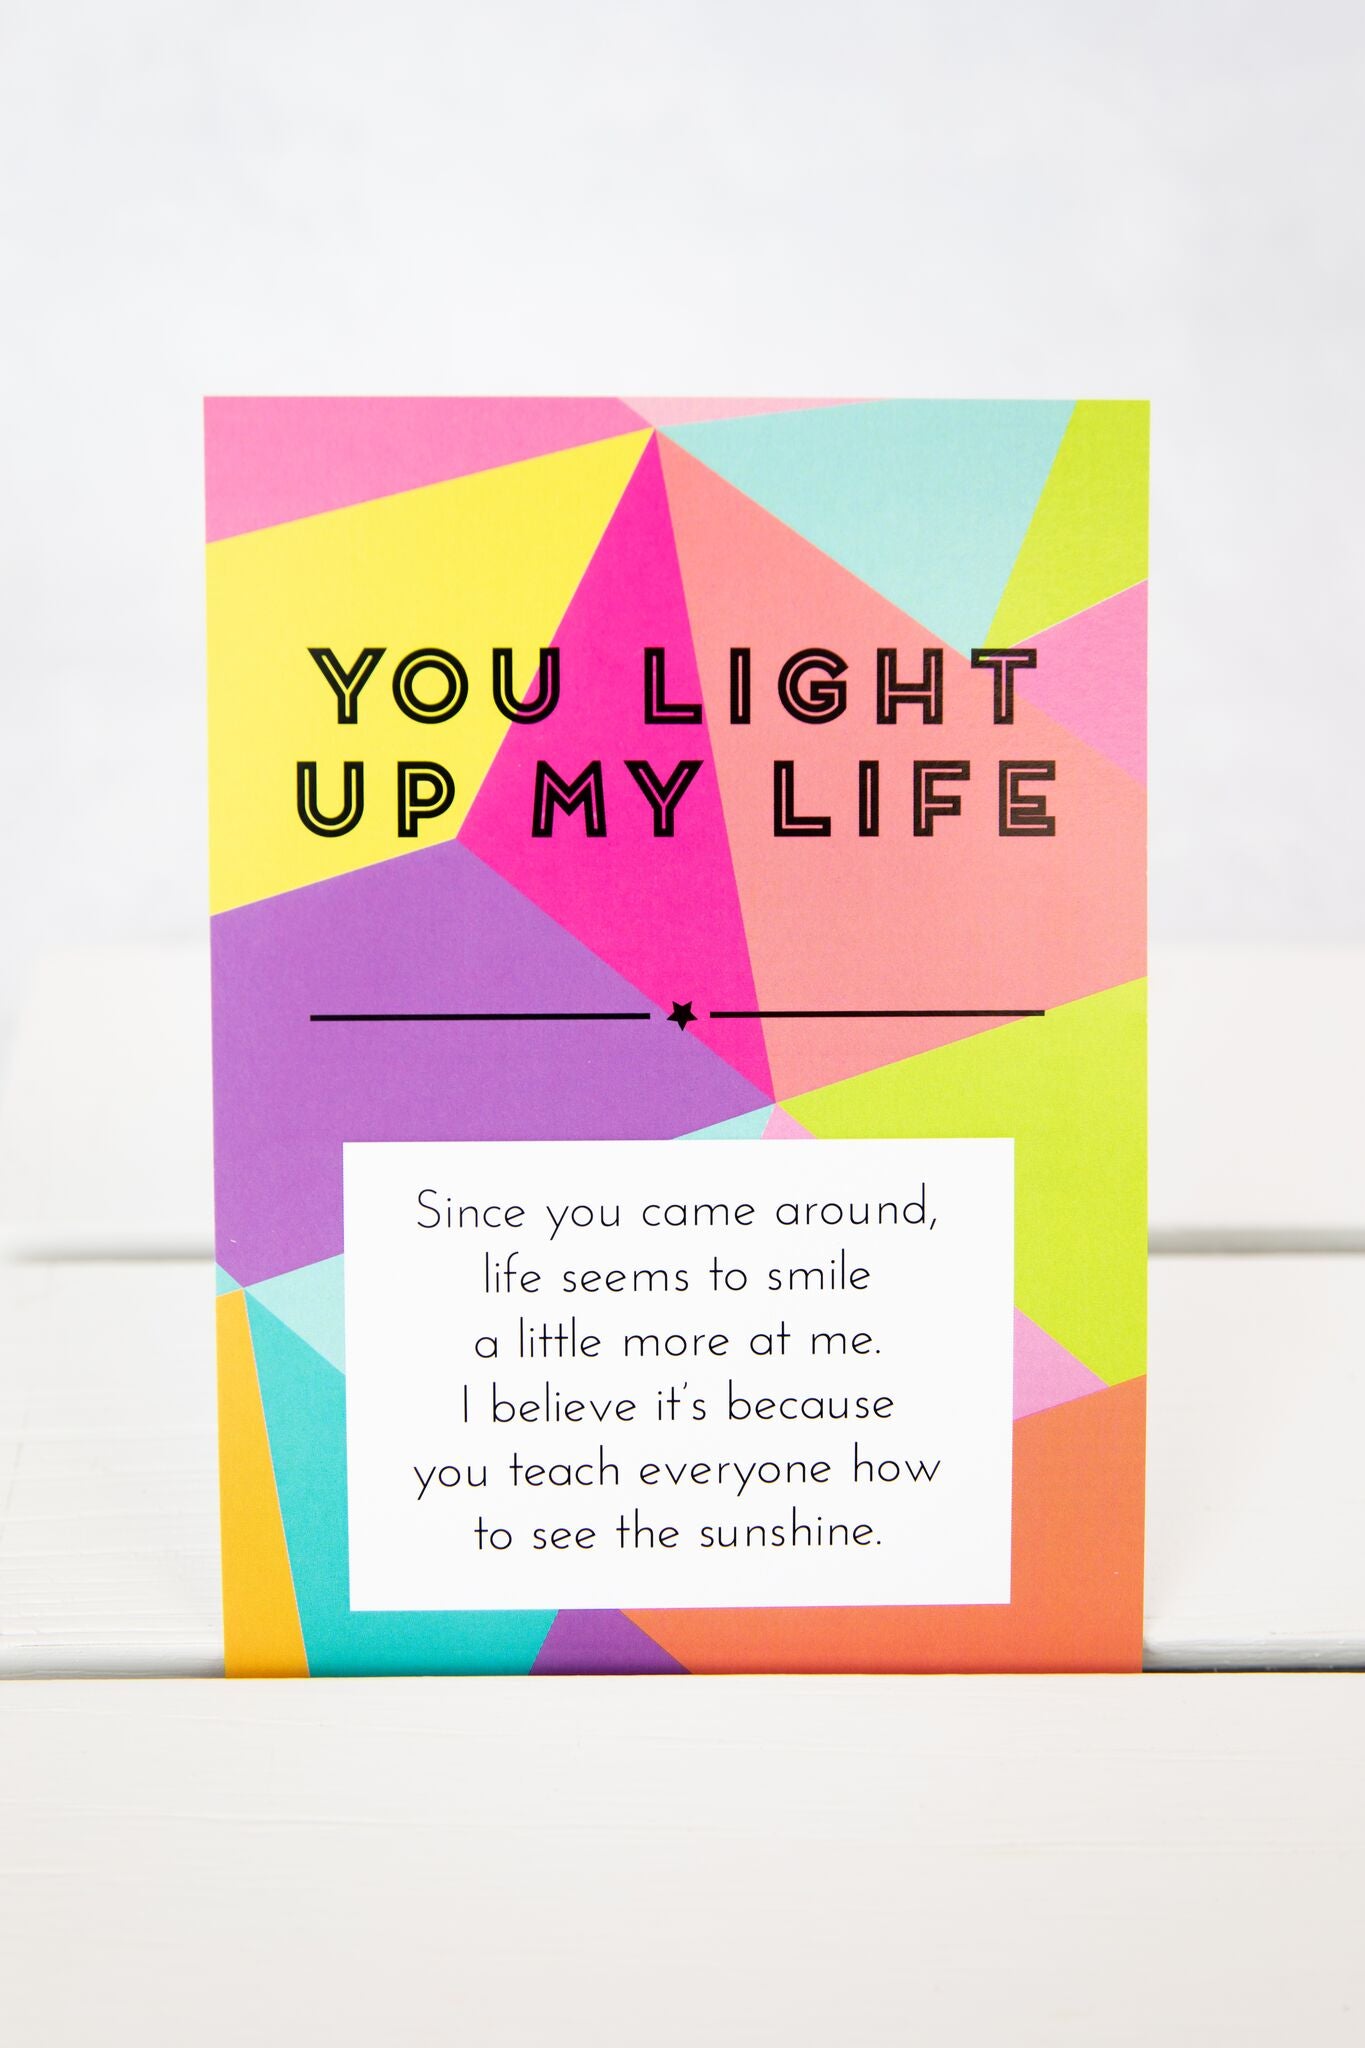 YOU LIGHT
UP MY LIFE
Since you came around,
life seems to smile
a little more at me.
I believe it's because
you teach everyone how
to see the sunshine.